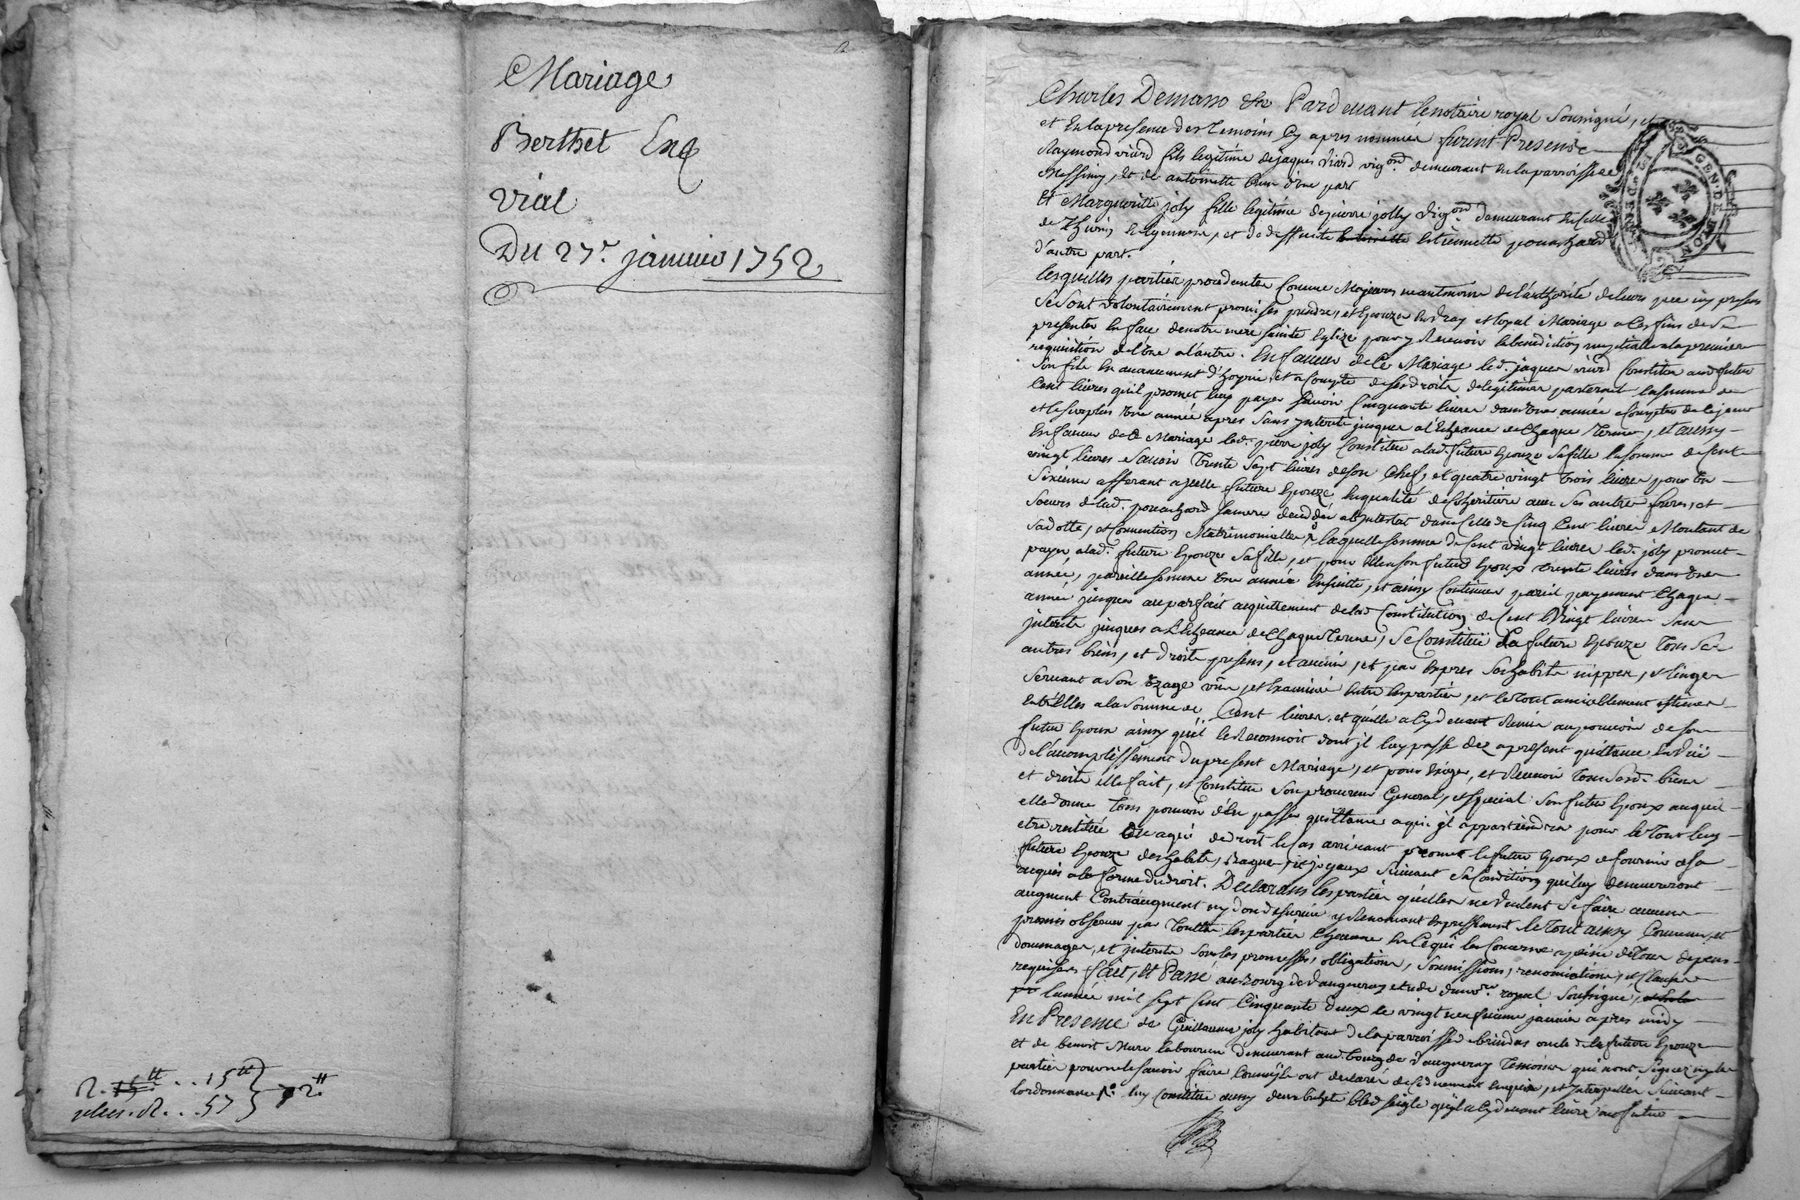 Mariage
Berthet Et
vial
Du 27.r janvier 1752
R. 15tt .. 15tt
plus. R... 57 } 72.tt
Charles Demasso &c Pardevant le notaire royal Soussigné, et
et En la presence des Temoins Cy apres nommés furent Presens
Raymond viard fils legitime de jaques viard vigr.on demeurant En la parroisse de
Messimy, Et de antoinette d'une part
Et Margueritte joly fille legitime de pierre jolly vigr.on demeurant En Celle
de Thurins En Lyonnois, et de deffunte Estiennette pouachard
d'autre part.
Lesquelles parties procedantes Comme Majeures neantmoins de l'authorité de leurs pere icy presens
Se Sont volontairement promises prendre, et Epouzer En vray et loyal Mariage a Ces fins de Se
presenter En face de notre mere Sainte Eglize pour y Recevoir la benediction nuptialle a la premiere
requisition de l'Une a l'autre. En faveur de Ce Mariage led. jaques viard Constitue aud. futur
Son fils En avancement d'hoyrie et a Compte de Ses droits de legitime paternel la Somme de
Cent livres qu'il promet luy payer Savoir Cinquante livres dans Une année a Compter de Ce jour
et le Surplus Une année apres Sans Interets jusques a l'Echeance de Chaque terme, Et aussy
En faveur de Ce Mariage led. pierre joly Constitue a lad. future Epouze Sa fille la Somme de Cent
vingt livres Savoir Trente Sept livres de Son Chef, et quatre vingt Trois livres pour Un
Sixieme afferant a jcelle future Epouze En qualité de Coheritiere avec Ses autres freres, et
Soeurs de lad. pouachard Sa mere decedée abjntestat dans Celle de Cinq Cent livres Montant de
Sa dotte, et Convention Matrimonielle, laquelle Somme de Cent vingt livres led. joly promet
payer a lad. future Epouze Sa fille, et pour Elle a Son futur Epoux Trente livres dans Une
année, pareille Somme Une année Ensuitte, et ainsy Continuer pareil payement Chaque
année jusques au parfait acquittement de lad. Constitution de Cent Vingt livres Sans
jnterets jusques a L'Echeance de Chaque Terme, Se Constitue La future Epouze Tous Ses
autres biens, et droits presens, et avenir, et par Expres Ses habits nippes, et linges
Servant a Son Uzage vûs, et Examiné Entre les parties, et le Tout amiablement Estimés
Entr'Elles a la Somme de Cent livres. et qu'elle a Cy devant Remis au pouvoir de Son
futur Epoux ainsy qu'il le Reconnoit dont jl luy passe dez apresent quittance En Vuë
de l'accomplissement du present Mariage, et pour Exiger, et Recevoir Tous Sesd. biens
et droits elle fait, et Constitue Son procureur General, et Special Son futur Epoux auquel
elle donne Tous pouvoir d'En passer quittance a qui jl appartiendra pour le Tout luy
etre restitué ou a qui de droit le Cas arrivant promet le futur Epoux de fournir a Sa
future Epouze des habits, Bagues, et joyaux Suivant Sa Condition qui luy demeureront
acquis a la forme du droit. Declarans les parties qu'elles ne veulent Se faire aucuns
augment Contraugment ny don de Survie y Renonçant Expressement le Tout aussy Convenu, et
promis observer par Touttes les parties Chacune En Ce qui la Concerne a peine de Tous depens
dommages, et jnterets Sous les promesses, obligations, Soumissions, renonciations, et Clauses
requises fait, Et Passé au Bourg de Vaugneray etude du no.re royal Soussigné,
l'année mil Sept Cent Cinquante deux le vingt janvier apres midy
En Presence de Guillaume joly habitant de la parroisse de brindas oncle de la future Epouze
et de benoit Mure laboureur demeurant aud. bourg de Vaugneray Temoins qui n'ont Signé ny les
parties pour ne le Savoir faire Comme jls ont declaré de Ce duement Enquis, et Interpellés Suivant
l'ordonnance luy Constitue aussy deux bichets bled Seigle qu'jl a Cy devant livré au futur
GEN. DE LYON